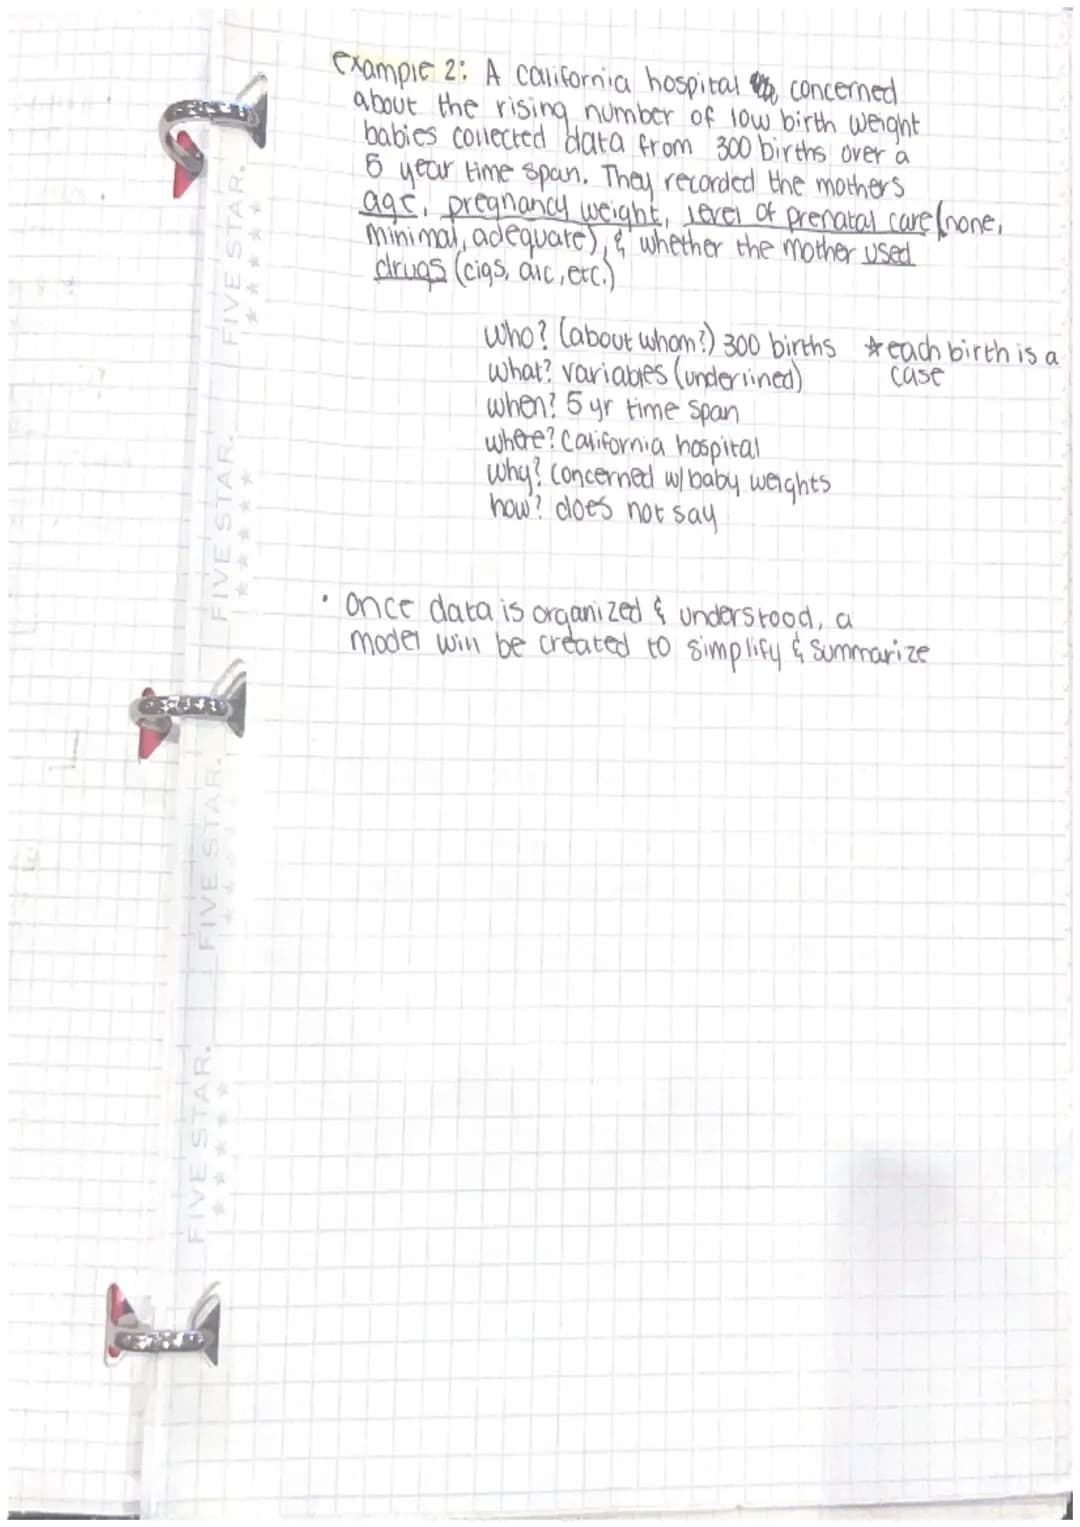 example 2: A california hospital concerned
about the rising number of low birth weight
babies collected data from 300 births over a
5 year time span. They recorded the mothers
age, pregnancy weight, level of prenatal care (none,
minimal, adequate), & whether the mother used
drugs (cigs, alc, etc.)
who? (about whom?) 300 births ★each birth is a
case
what? variables (underlined)
when? 5 yr time span
where? California hospital
why? concerned w/ baby weights
how? does not say
• once data is organized & understood, a
model will be created to simplify & summarize
FIVE STAR.
FIVE STAR.
FIVE STAR.
FIVE STAR.